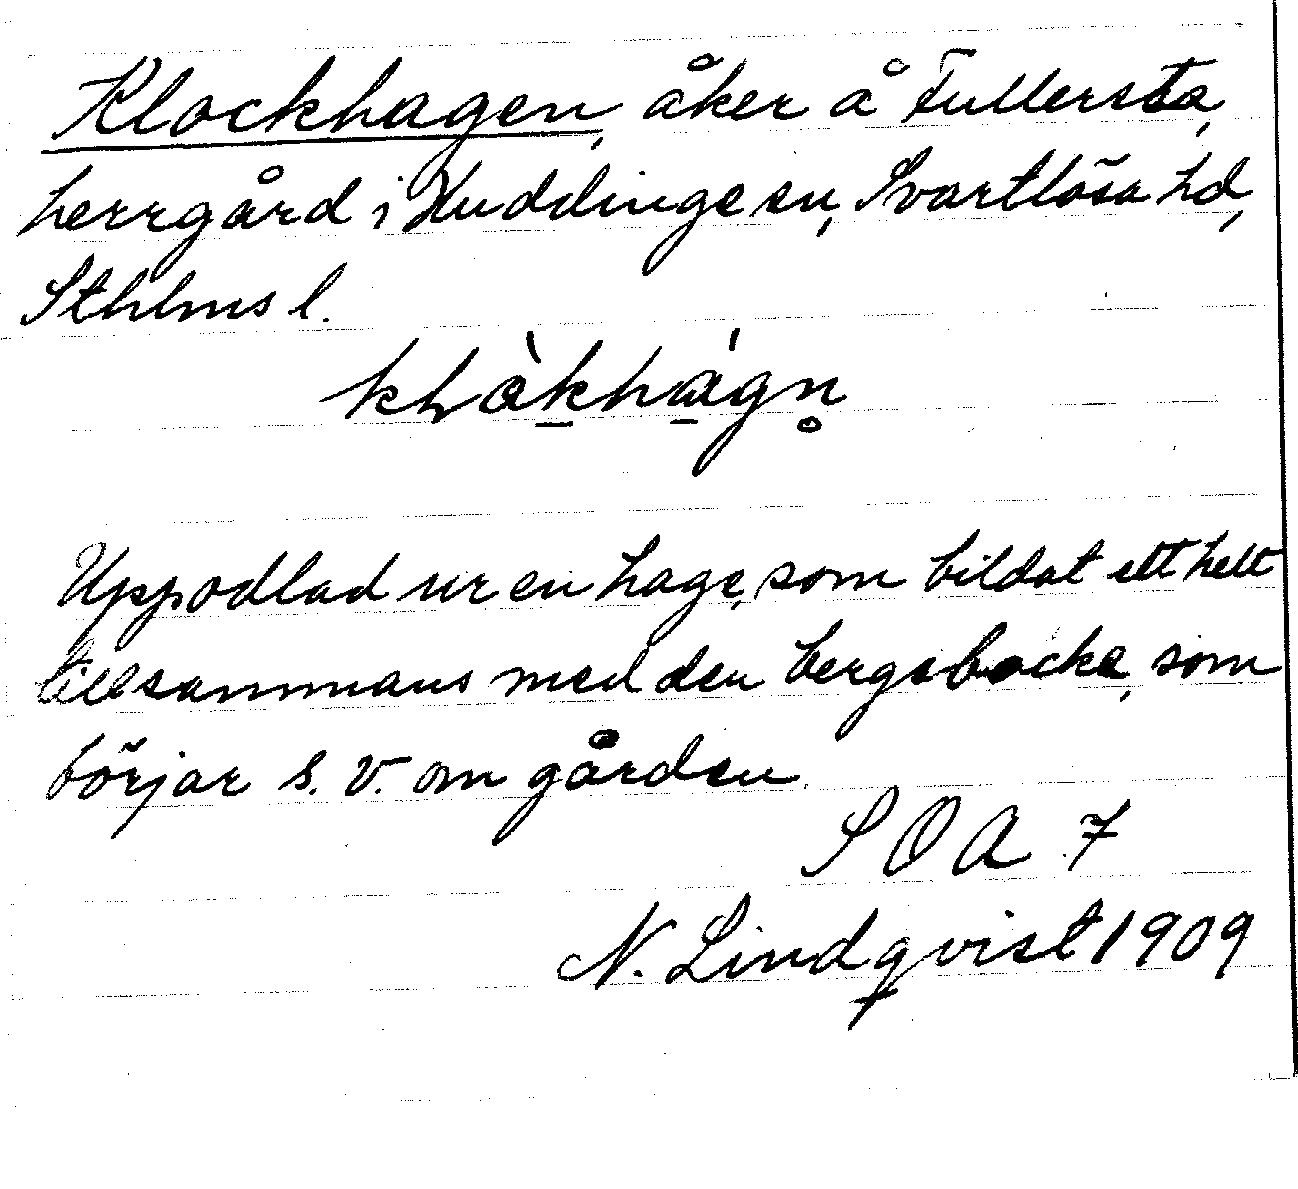 Klockhagen, åker å Fullersta,
herrgård i Huddinge sn, Svartlösa hd,
Sthlms l.
Uppodlad ur en hage, som bildat ett helt
tillsammans med den bergsbacke, som
börjar s. v. om gården.
SOA 7
N. Lindqvist 1909